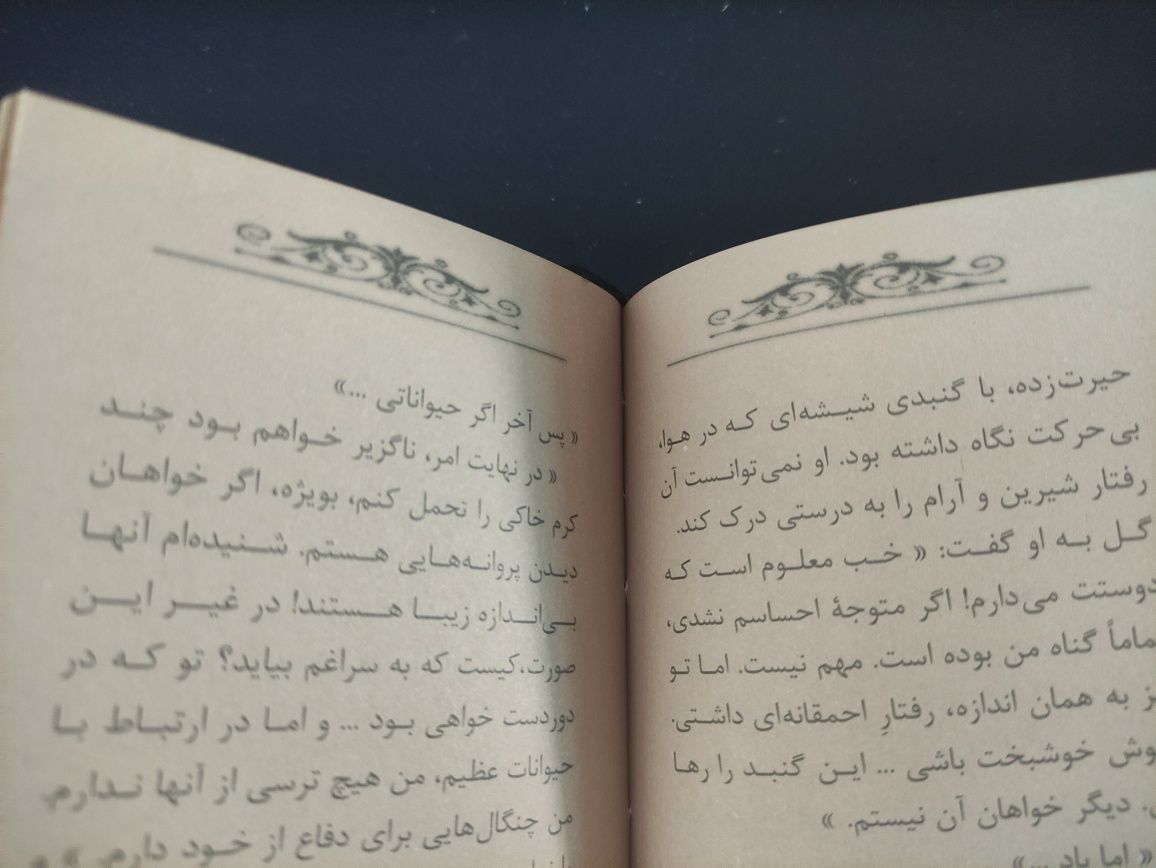 حیرت‌زده، با گنبدی شیشه‌ای که در هوا،
بی‌حرکت نگاه داشته بود. او نمی‌توانست آن
رفتار شیرین و آرام را به درستی درک کند.
گل به او گفت: « خب معلوم است که
دوستت می‌دارم! اگر متوجهٔ احساسم نشدی،
تماماً گناه من بوده است. مهم نیست. اما تو
به همان اندازه، رفتارِ احمقانه‌ای داشتی.
خوشبخت باشی ... این گنبد را رها
دیگر خواهان آن نیستم. »
« اما باد ...»
« پس آخر اگر حیواناتی ...»
« در نهایت امر، ناگزیر خواهم بود چند
کرم خاکی را تحمل کنم، بویژه، اگر خواهان
دیدن پروانه‌هایی هستم. شنیده‌ام آنها
بی‌اندازه زیبا هستند! در غیر این
صورت،کیست که به سراغم بیاید؟ تو که در
دوردست خواهی بود ... و اما در ارتباط با
حیوانات عظیم، من هیچ ترسی از آنها ندارم.
من چنگال‌هایی برای دفاع از خود دارم. » و